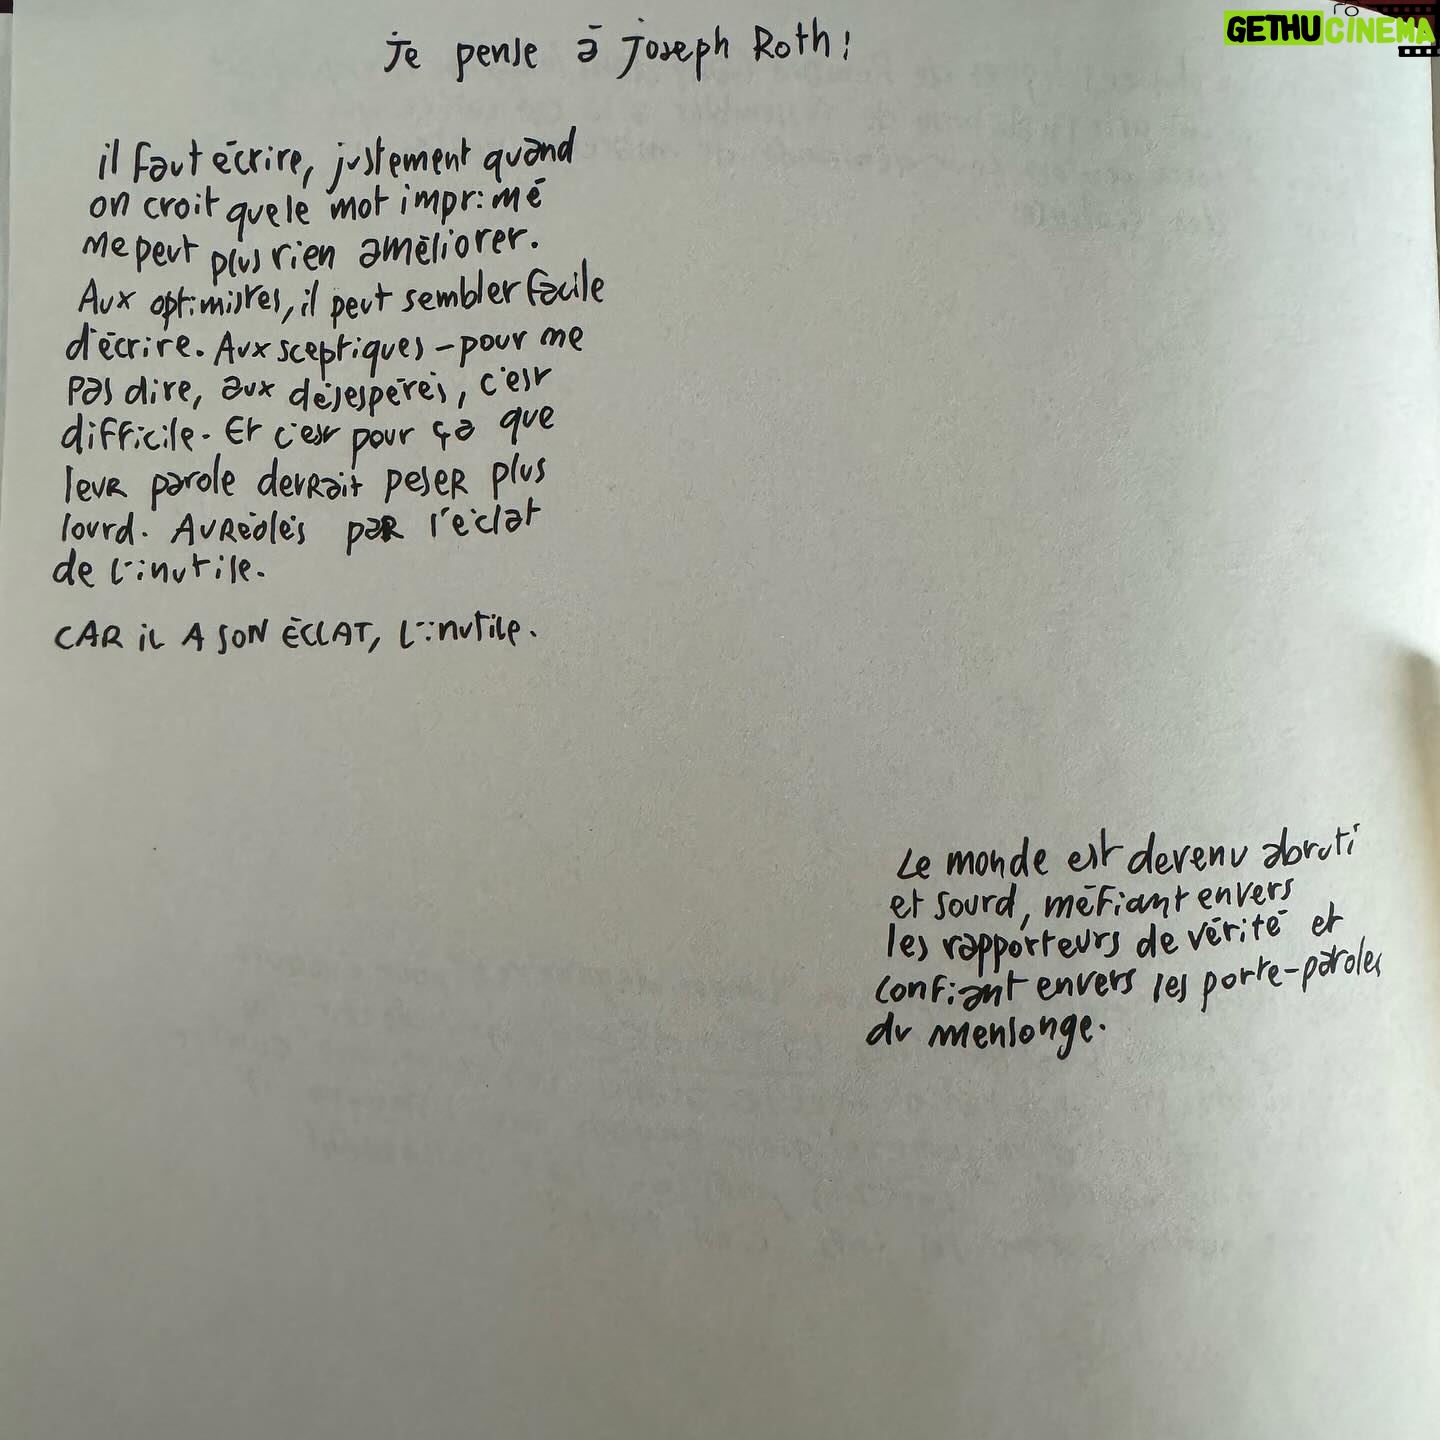 je pense à joseph Roth !
il faut écrire, justement quand
on croit que le mot imprimé
me peut plus rien améliorer.
Aux optimistes, il peut sembler facile
d'écrire. Aux sceptiques - pour me
pas dire, aux désespérés, c'est
difficile. Et c'est pour ça que
leur parole devrait peser plus
lourd. Auréolés par l'éclat
de l'inutile.
CAR iL A SON ÉCLAT, L'inutile.
Le monde est devenu abruti
et sourd, méfiant envers
les rapporteurs de vérité et
confiant envers les porte-paroles
du mensonge.
GETHUCINEMA